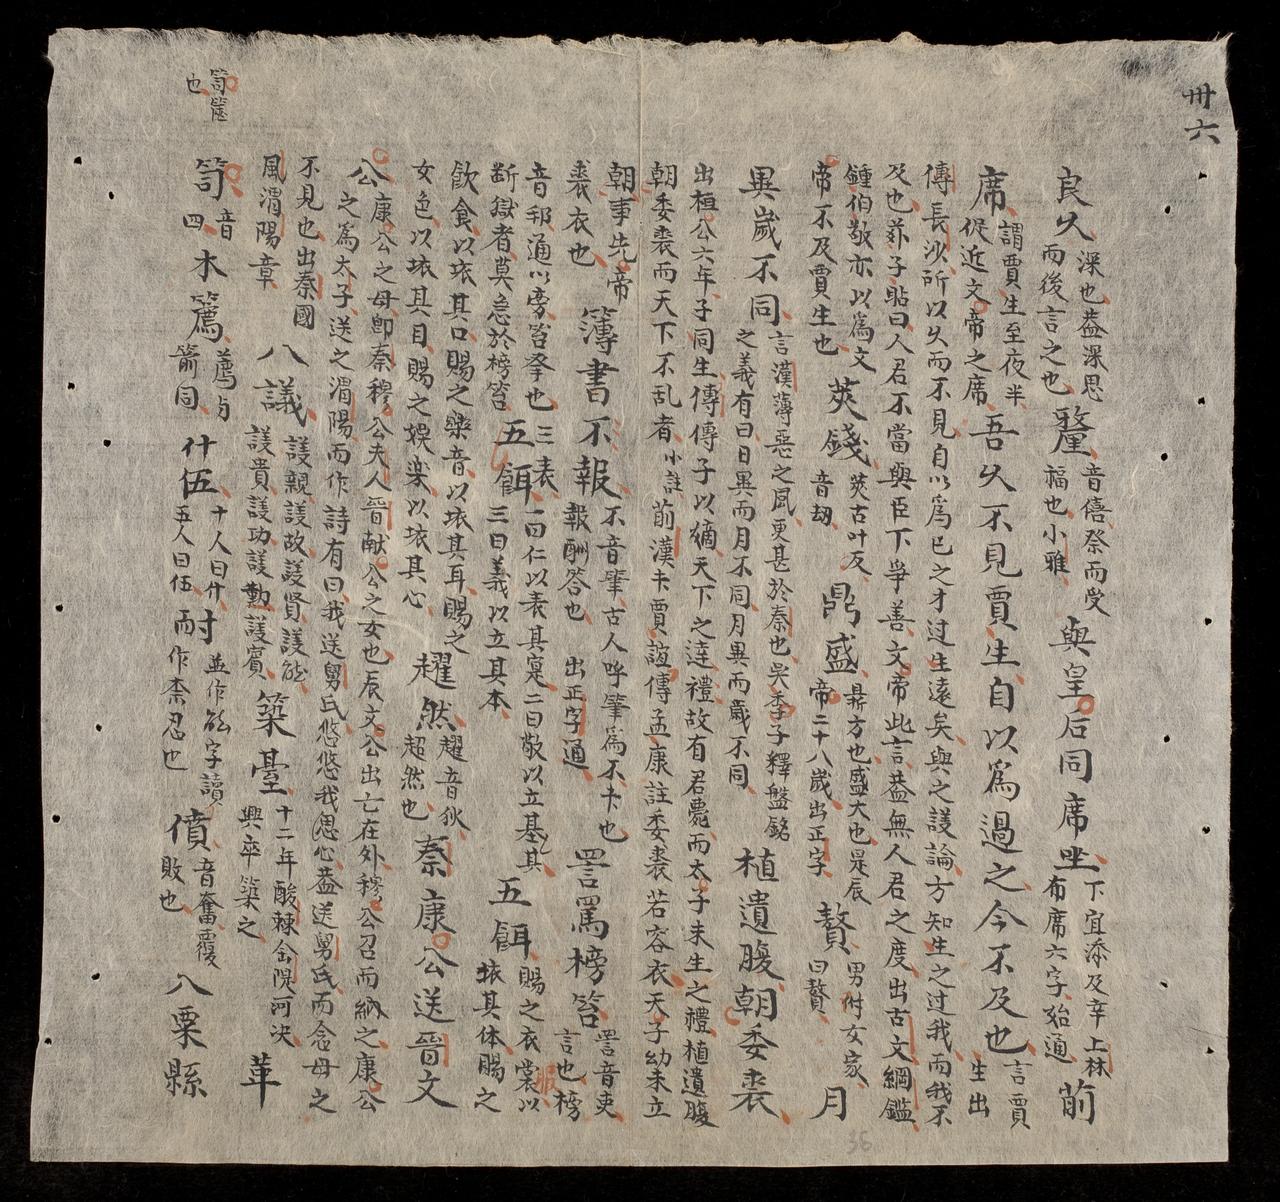 卅六
良久 深也蓋深思
而後言之也
釐 音僖祭而受
福也小雅
與皇后同席坐 下宜添及幸上林
布席六字始通
前
席 謂賈生至夜半
促近文帝之席
吾久不見賈生自以為過之今不及也 言賈
生出
傳長沙所以久而不見自以為己之才過生遠矣與之議論方知生之過我而我不
及也 子貼曰人君不當與臣下爭善文帝此言蓋無人君之度出古文綱鑑
鍾伯敬亦以為文
帝不及賈生也
莢錢 莢古叶反
音刼
鼎盛 鼎方也盛大也是辰
帝二十八歲出正字
贅 男附女家
曰贅
月
異歲不同 言漢薄惡之風更甚於秦也吳季子釋盤銘
之義有曰日異而月不同月異而歲不同
植遺腹朝委裘
出桓公六年子同生傳傳子以嫡天下之達禮故有君薨而太子未生之禮植遺腹
朝委裘而天下不乱者 小註前漢卡賈誼傳孟康註委裘若容衣天子幼未立
朝事先帝
裘衣也
簿書不報 不音肇古人呼肇為不卡也
報酬答也 出正字通
詈罵榜笞 詈音吏
言也榜
音邦通以旁笞拏也
斷獄者莫急於榜笞
三表
五餌 一曰仁以表其寔二曰敬以立基其
三曰義以立其本
五餌 賜之衣裳以
服
㙇其体賜之
飲食以㙇其口賜之樂音以㙇其耳賜之
女色以㙇其目賜之娛樂以㙇其心
趯然 趯音狄
超然也
秦康公送晉文
公 康公之母卽秦穆公夫人晉献公之女也辰文公出亡在外穆公召而納之康公
之為太子送之渭陽而作詩有曰我送舅氏悠悠我思心蓋送舅氏而念母之
不見也出秦國
風渭陽章
八議 議親議故議賢議能
議貴議功議勤議賓
築臺 十二年酸棘金隄河決
興卒築之
革
笥 音
四
木篶 薦与
箭同
什伍 十人曰什
五人曰伍
耐 並作能字讀
作柰忍也
僨 音奮覆
敗也
八粟縣
笥篋
也
36